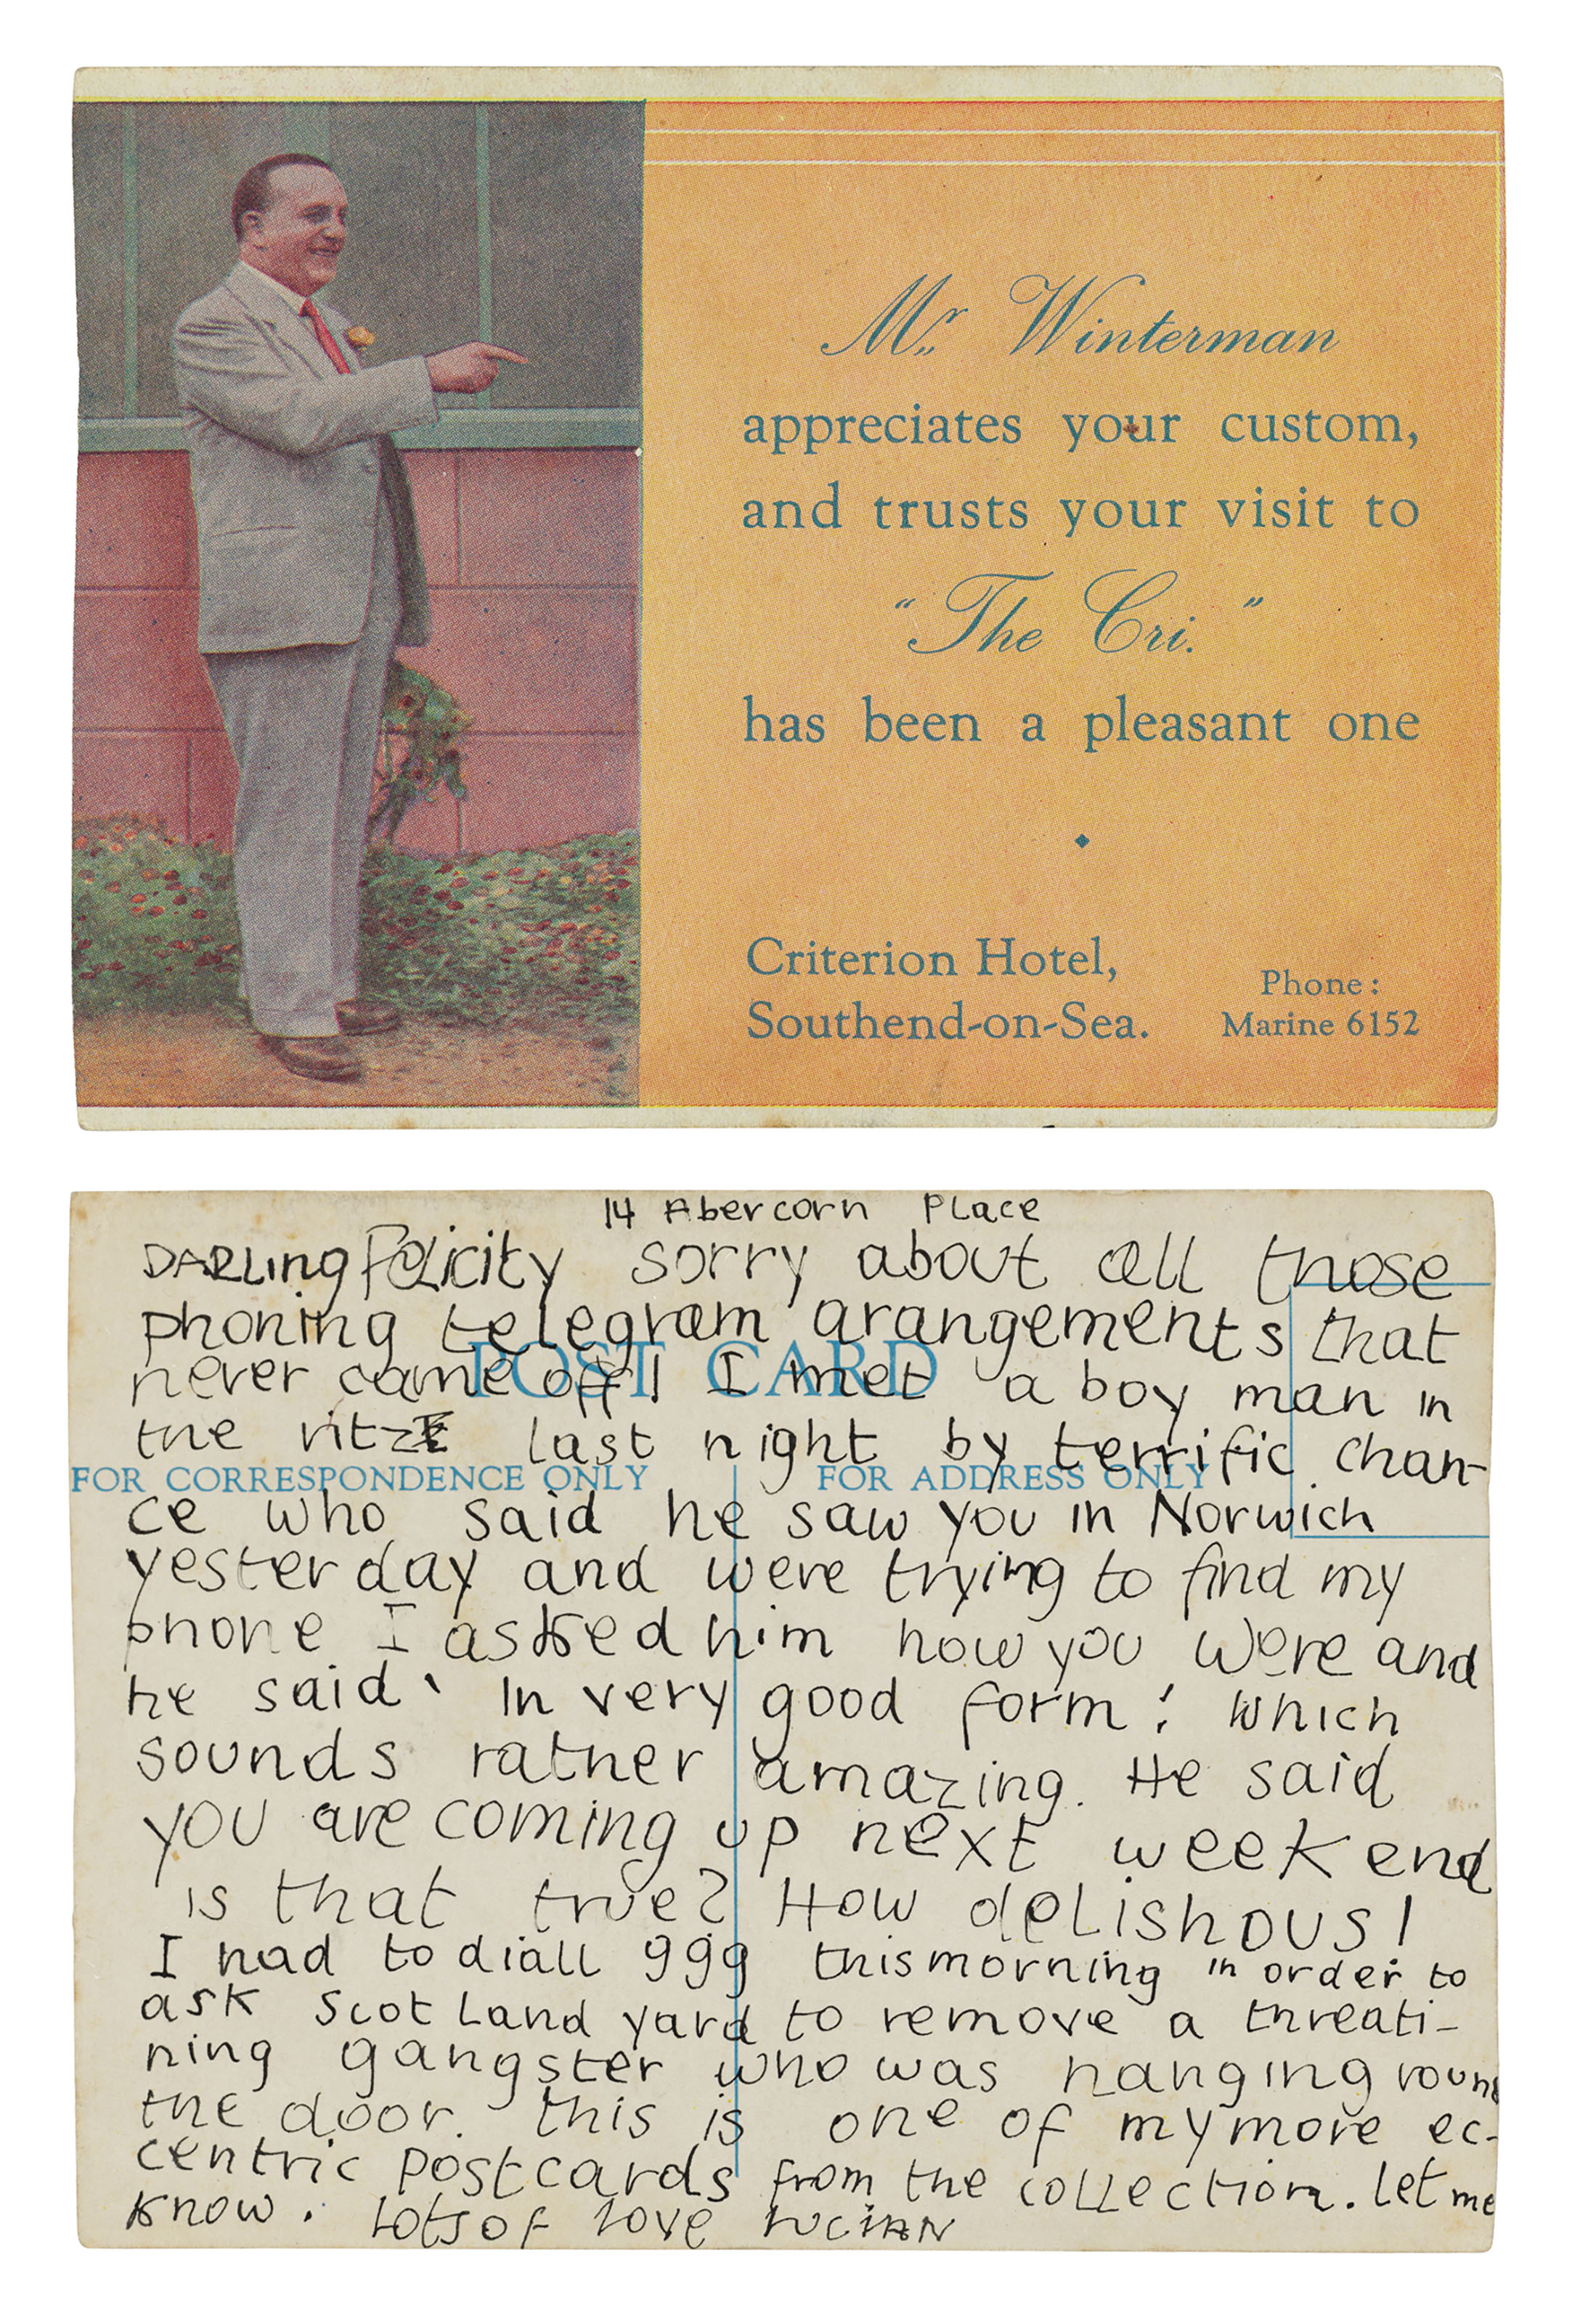 Mr. Winterman
appreciates your custom,
and trusts your visit to
"The Cri."
has been a pleasant one
Criterion Hotel,
Southend-on-Sea.
Phone:
Marine 6152
14 Abercorn Place
DARLing Felicity sorry about all those
phoning telegram arangements that
never came off! I met a boy man in
the ritz last night by terrific chan-
ce who said he saw you in Norwich
yesterday and were trying to find my
phone I asked him how you were and
he said ' In very good form! Which
sounds rather amazing. He said
you are coming up next week end
is that true? How delishous!
I had to diall 999 this morning in order to
ask Scotland yard to remove a threati-
ning gangster who was hanging round
the door. this is one of my more ec-
centric postcards from the collection. let me
know. lots of love LUCIAN
POST CARD
FOR CORRESPONDENCE ONLY
FOR ADDRESS ONLY